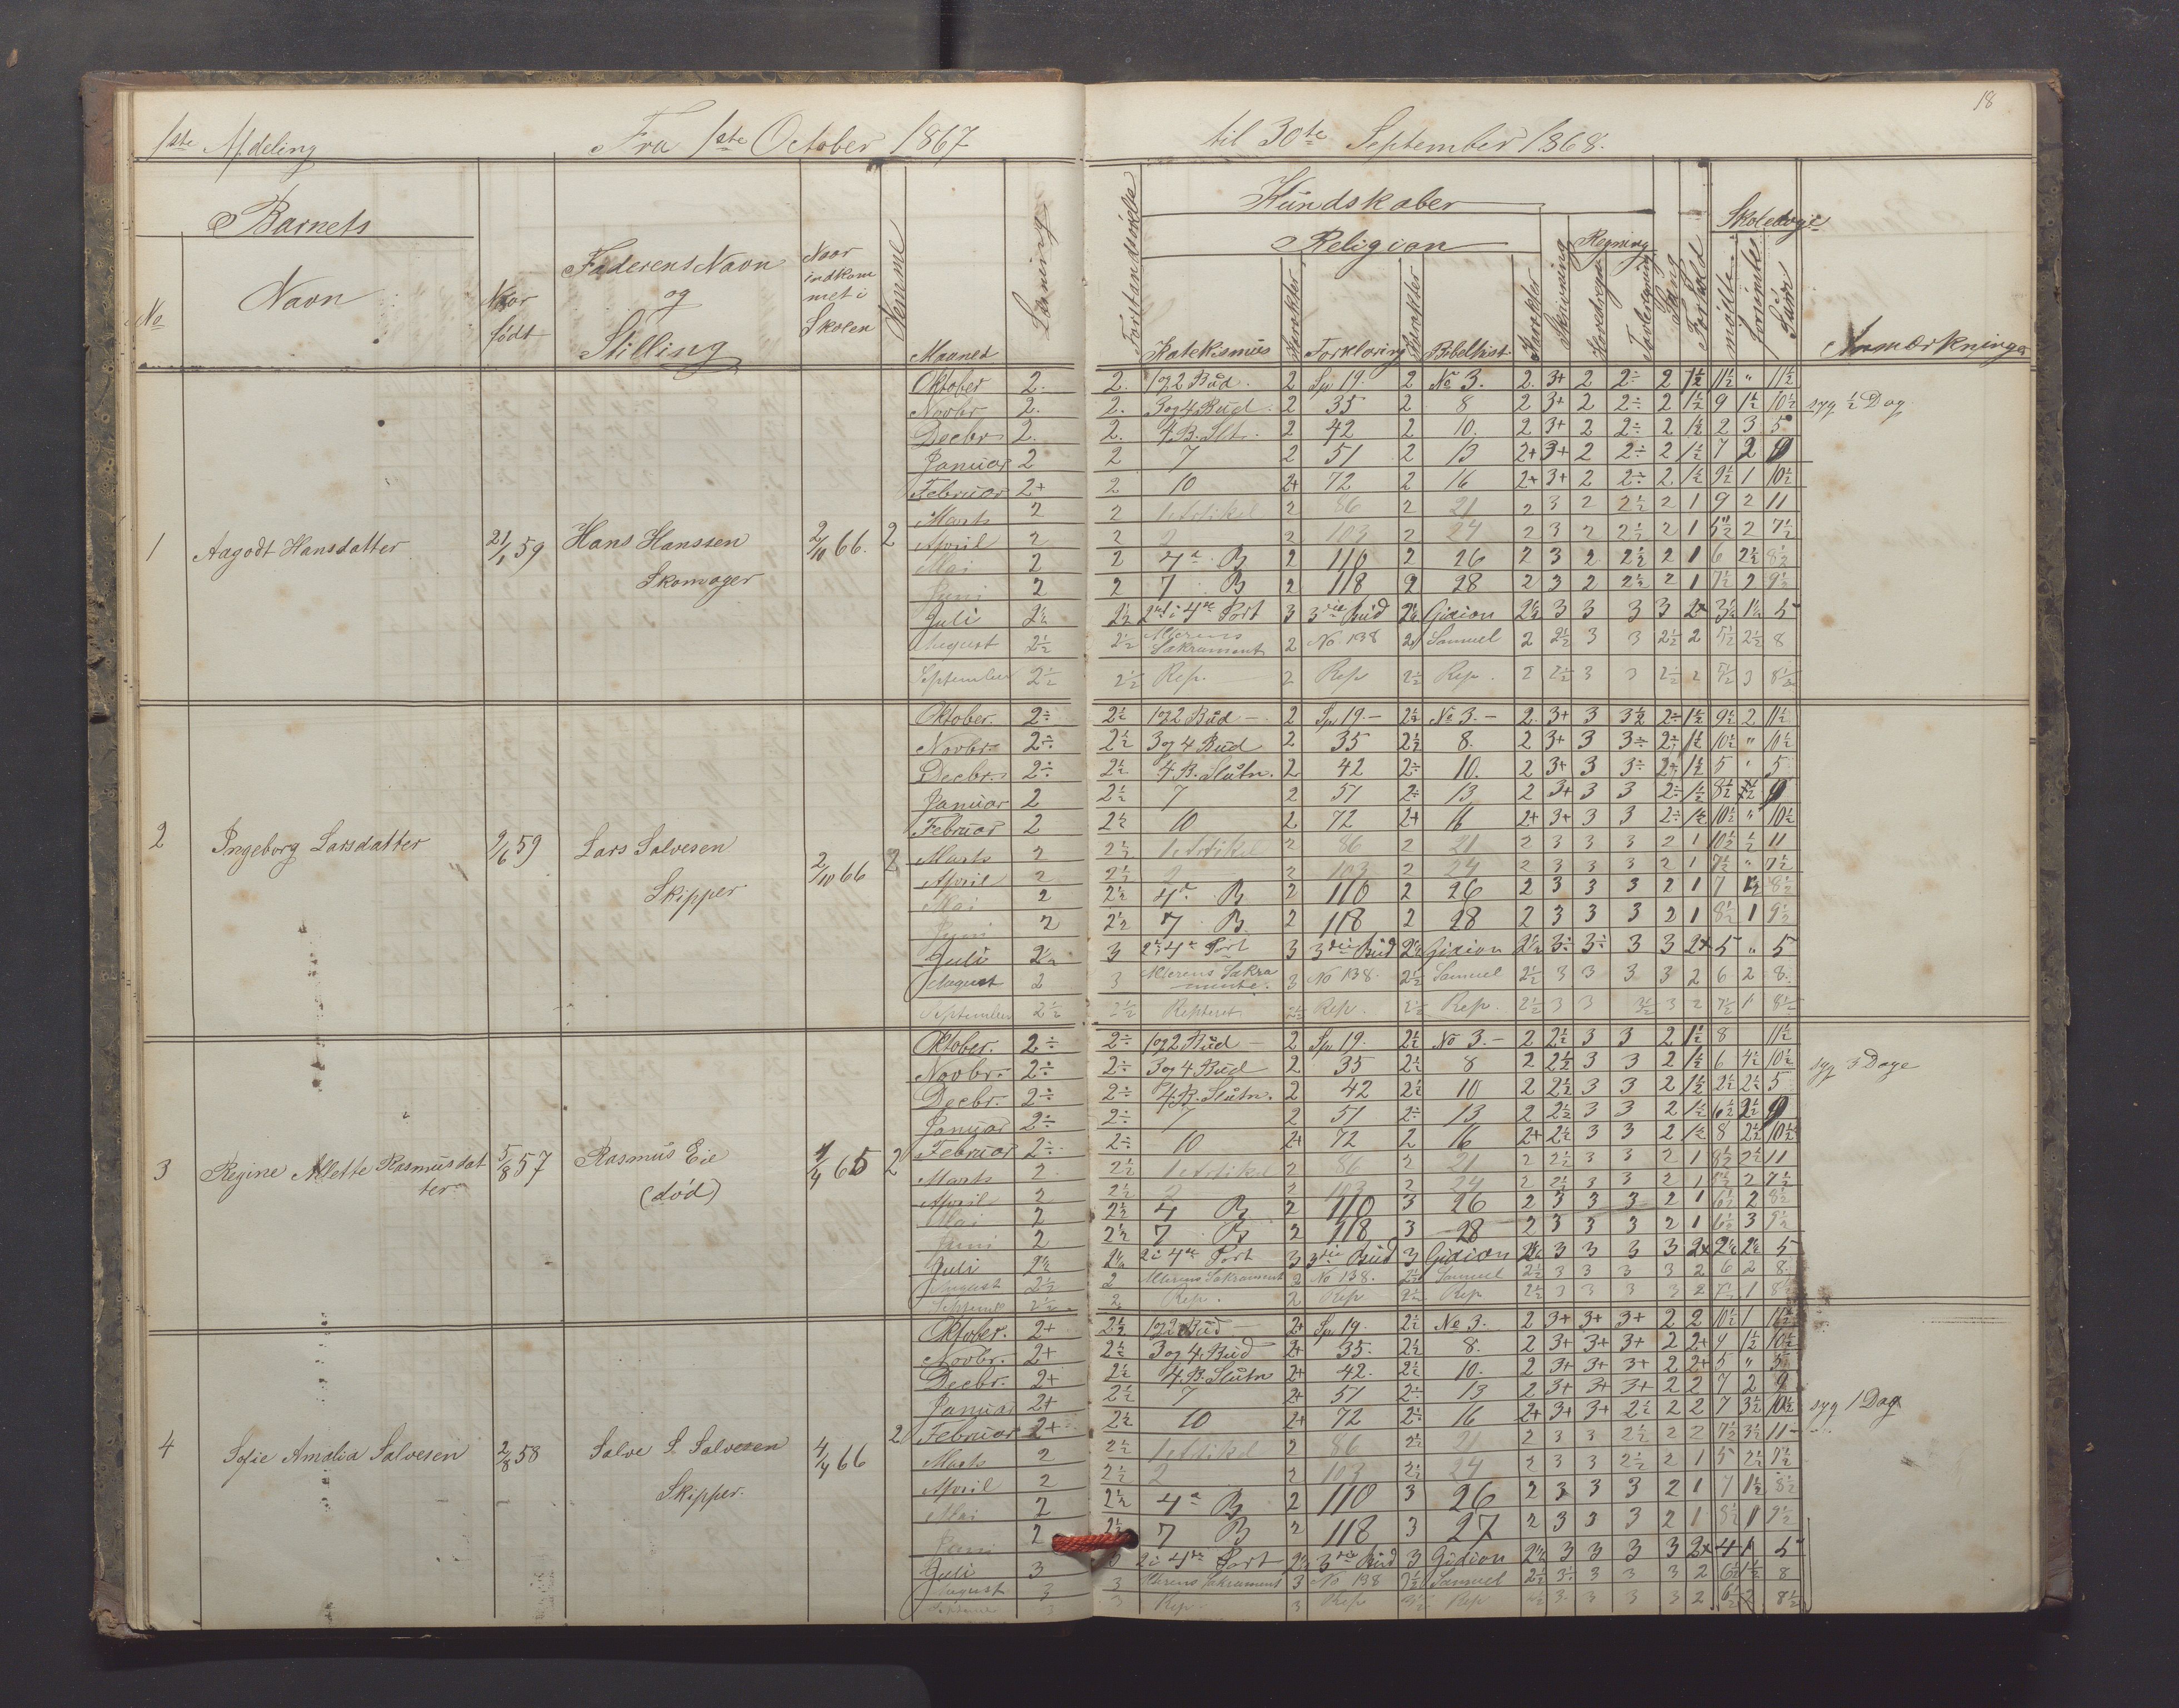 18
1ste Afdeling Fra 1ste October 1867 til 30te September 1868.
Barnets
No
Navn
Naar født
Faderens Navn og Stilling
Naar indkommet i Skolen
Nemme
Maaned
Læsning
Forstandsøvelse
Kundskaber
Religion
Katekismus
Karakter
Forklaring
Karakter
Bibelhist.
Karakter
Skrivning
Regning
Hovedregn.
Tavleregning
Sang
Forhold
Skoledage
mødte
forsømte
Sum
Anmærkninger
1 Aagodt Hansdatter 21/1 59 Hans Hanssen Skomager 2/10 66. 2
Oktober 2. 2. 1og2 Bud. 2 Sp 19. 2 No 3. 2. 3+ 2 2÷ 2 1½ 11½ " 11½
Novbr. 2. 2. 3og4 Bud. 2 35 2 8 2 3+ 2 2÷ 2 1½ 9 1½ 10½ syg ½ Dag
Decbr. 2. 2. 4.B. Slt. 2 42 2 10. 2 3+ 2 2÷ 2 1½ 2 3 5
Januar 2 2 7 2 51 2 13 2+ 3+ 2 2÷ 2 1½ 7 2 9
Februar 2+ 2 10 2+ 72 2 16 2+ 3+ 2 2÷ 2 1½ 9½ 1 10½
Marts 2 2 1 Artikel 2 86 2 21 2 3 2 2½ 2 1 9 2 11
April 2 2 2 2 103 2 24 2 3 2 2½ 2 1 5½ 2 7½
Mai 2 2 4de B 2 110 2 26 2 3 2 2½ 2 1 6 2½ 8½
Juni 2 2 7 B 2 118 2 28 2 3 2 2½ 2 1 7½ 2 9½
Juli 2½ 2½ 2det i 4de Part 3 3die Bud 2½ Gidion 2½ 3 3 3 3 2+ 3½ 1½ 5
August 2½ 2½ Alterens Sakrament 2 No 138 2 Samuel 2 2½ 3 3 2½ 2 5½ 2½ 8
September 2½ 2½ Rep. 2 Rep 2½ Rep. 2 2½ 3 3 2½ 2 5½ 3 8½
2 Ingeborg Larsdatter 9/6 59 Lars Salvesen Skipper 2/10 66 2
Oktober. 2÷ 2½ 1og2 Bud 2 Sp 19. 2½ No 3. 2. 3+ 3 3½ 2÷ 1½ 9½ 2 11½
Novbr. 2÷ 2½ 3og4 Bud 2 35 2½ 8. 2 3+ 3 3÷ 2÷ 1½ 10½ " 10½
Decbr. 2÷ 2½ 4.B. Slutn. 2 42 2÷ 10. 2 3+ 3 3÷ 2÷ 1½ 5 " 5
Januar 2 2½ 7 2 51 2÷ 13 2 3+ 3 3 2÷ 1½ 8½ ½ 9
Februar 2 2½ 10 2 72 2+ 16 2+ 3+ 3 3 2÷ 1½ 10½ " 10½
Marts 2 2½ 1 Artikel 2 86 2 21 2 3 3 3 2 1 10½ ½ 11
April 2 2½ 2 2 103 2 24 2 3 3 3 2 1 7½ " 7½
Mai 2 2½ 4de B 2 110 2 26 2 3 3 3 2 1 7 1½ 8½
Juni 2 2½ 7 B. 2 118 2 28 2 3 3 3 2 1 8½ 1 9½
Juli 2½ 3 2 i 4de Part 3 3die Bud 2½ Gidion 2½ 3÷ 3÷ 3 3 2+ 5 " 5
August 2 3 Alterens Sakramente. 3 No 138. 2½ Samuel 2½ 3 3 3 3 2 6 2 8.
September 2½ 2½ Repteret 2½ Rep. 2½ Rep. 2½ 3 3 3½ 3 2 7½ 1 8½
3 Regine Alette Rasmusdatter 5/8 57 Rasmus Eie (død) 4/4 65 2
Oktober. 2÷ 2÷ 1og2 Bud 2 Sp 19. 2½ No 3. 2 2½ 3 3 2 1½ 8 11½
Novbr. 2÷ 2÷ 3og4 Bud 2 35 2½ 8 2 2½ 3 3 2 1½ 6 4½ 10½ syg 3 Dage
Decbr. 2÷ 2÷ 4.B. Slutn. 2 42 2½ 10 2 2½ 3 3 2 1½ 2½ 2½ 5
Januar 2÷ 2÷ 7 2 51 2÷ 13 2 2½ 3 3 2 1½ 6½ 2½ 9
Februar 2÷ 2÷ 10 2+ 72 2 16 2+ 2½ 3 3 2 1½ 8 2½ 10½
Marts 2 2½ 1 Artikel 2 86 2 21 2 2½ 3 3 2 1 8½ 2½ 11
April 2 2½ 2 2 103 2 24 2 2½ 3 3 2 1 5½ 2 7½
Mai 2 2½ 4 B 2 110 3 26 2 3 3 3 2 1 6½ 2 8½
Juni 2 2½ 7 B 2 118 3 28 2 3 3 3 2 1 6½ 3 9½
Juli 2½ 2½ 2 i 4de Part 3 3die Bud 3 Gidion 2½ 3 3 3 3 2+ 2½ 2½ 5
August 2½ 2 Alterens Sakrament 2 No 138. 2½ Samuel 2½ 3 3 3 3 2 6 2 8.
Septembr 2½ 2 Rep. 2 Rep 2½ Rep 2½ 3 3 3 3 2 7½ 1 8½
4 Sofie Amalia Salvesen 2/8 58 Salve S. Salvesen Skipper. 4/4 66 2
Oktober. 2+ 2½ 1og2 Bud 2+ Sp 19. 2½ No 3. 2 3+ 3+ 3+ 2 2 10½ 1 11½
Novbr. 2+ 2½ 3og4 Bud 2+ 35. 2½ 8. 2 3+ 3+ 3+ 2 2+ 9 1½ 10½
Decbr. 2+ 2½ 4.B. Slutn 2+ 42. 2½ 10. 2 3+ 3+ 3+ 2 2+ 5 " 5
Januar 2+ 2½ 7 2+ 51 2÷ 13 2 3+ 3+ 3+ 2 2 7 2 9
Februar 2+ 2½ 10 2+ 72 2÷ 16 2+ 3+ 3+ 2½ 2 2 7 3½ 10½ syg 1 Dag
Marts 2 2½ 1 Artikel 2 86 2½ 21 2 3 3 2½ 2 2 7½ 3½ 11
April 2 2½ 2 2 103 2½ 24 2 3 3 2½ 2 1 5 2½ 7½
Mai 2 2½ 4de B 2 110 3 26 2 3 3 3 2 1 7 1½ 8½
Juni 2 2½ 7 B 2 118 3 27 2 3 3 3 2 1 8½ 1 9½
Juli 3 3 2 i 4de Part 2½ 3die Bud 3 Gidion 2½ 3 3 3 3 2+ 4 1 5
August 3 3 Alterens Sakrament 3 No 138 2½ Samuel 2½ 3÷ 3 3 3 2 6½ 1½ 8
Septembr 3 3 Rep. 3 Rep 2½ Rep 2½ 3 3 3 3 2 6½ 2 8½